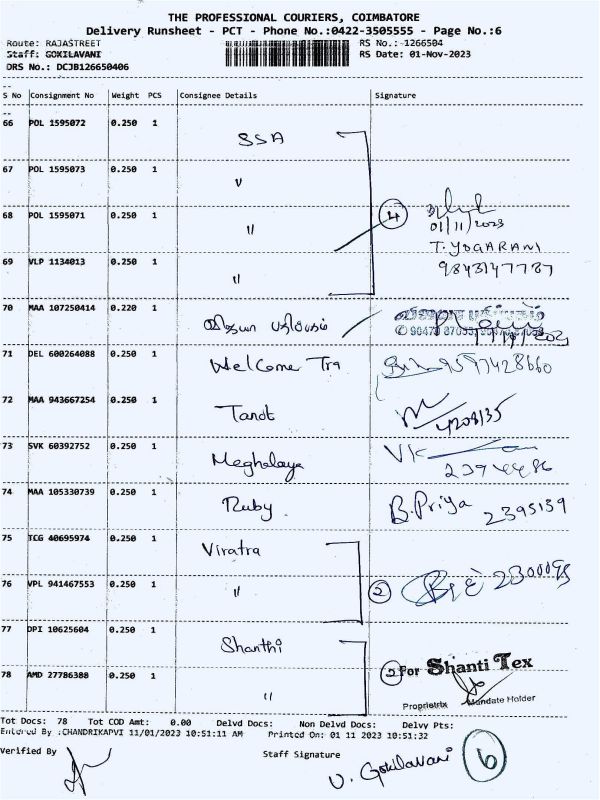 THE PROFESSIONAL COURIERS, COIMBATORE
Delivery Runsheet - PCT - Phone No.:0422-3505555 - Page No.:6
Route: RAJASTREET RS No.: -1266504
Staff: GOKILAVANI RS Date: 01-Nov-2023
DRS No.: DCJB126650406
S No Consignment No Weight PCS Consignee Details Signature
66 POL 1595072 0.250 1 SSA
67 POL 1595073 0.250 1 "
68 POL 1595071 0.250 1 " 4
01/11/2023
T. YOGARANI
69 VLP 1134013 0.250 1 " 9843147787
70 MAA 107250414 0.220 1
71 DEL 600264088 0.250 1 Welcome Tra 9597428660
72 MAA 943667254 0.250 1 Tanot 4208135
73 SVK 60392752 0.250 1 Meghalaya VK
2394486
74 MAA 105330739 0.250 1 Ruby B. Priya 2395139
75 TCG 40695974 0.250 1 Viratra
76 VPL 941467553 0.250 1 " 2 2300095
77 DPI 10625604 0.250 1 Shanthi
78 AMD 27786388 0.250 1 " 2 For Shanti Tex
Proprietrix Mandate Holder
Tot Docs: 78 Tot COD Amt: 0.00 Delvd Docs: Non Delvd Docs: Delvy Pts:
Entered By :CHANDRIKAPVI 11/01/2023 10:51:11 AM Printed On: 01 11 2023 10:51:32
Verified By Staff Signature V. Gokilavani 6